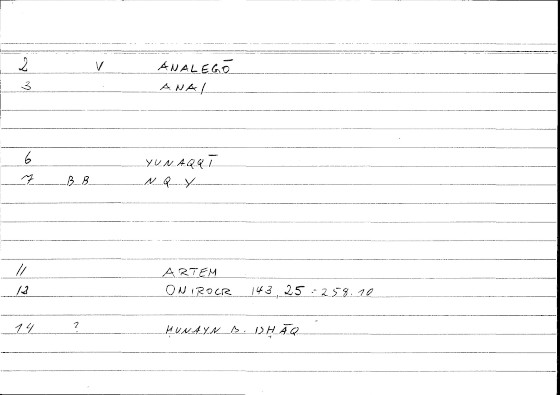 2 V ANALEGŌ
3 ANA/
6 YUNAQQĪ
7 BB NQY
11 ARTEM
12 ONIROCR 143,25 = 258.10
14 ? ḤUNAYN B. ISḤĀQ